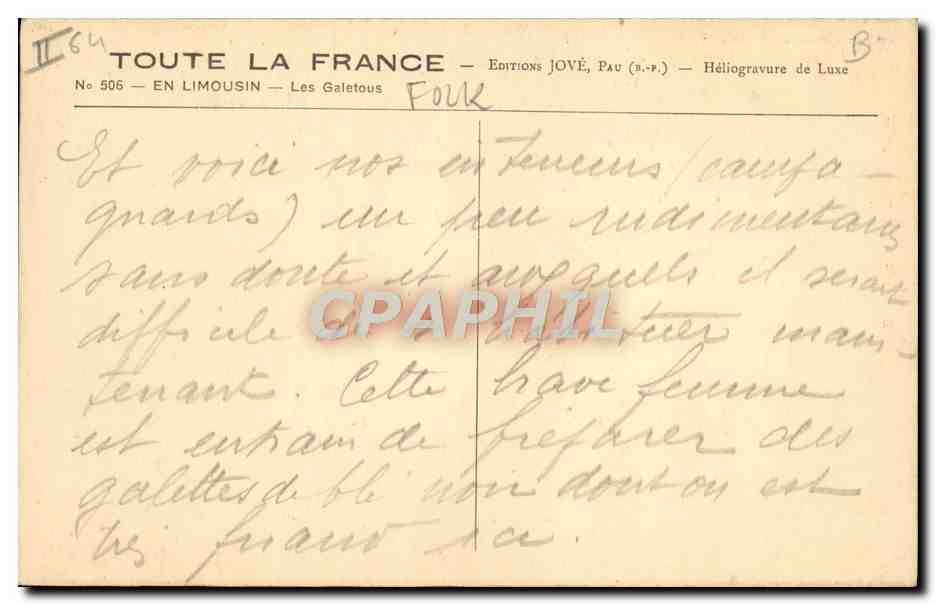 II 64
B
TOUTE LA FRANCE — EDITIONS JOVÉ, PAU (B.-P.) — Héliogravure de Luxe
No 506 — EN LIMOUSIN — Les Galetous
FOLK
Et voici nos (campa-
gnards) un peu rudimentaires
sans doute et auxquels il serait
difficile de s'habituer main-
tenant. Cette brave femme
est entrain de préparer des
galettes de blé noir dont on est
très friand ici.
CPAPHIL